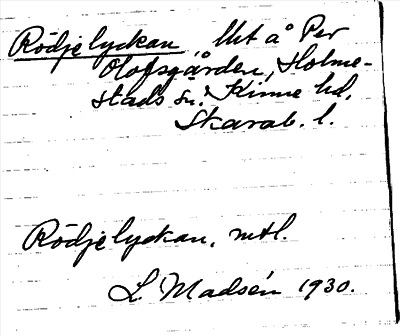 Rödjelyckan, Urt å Per
Olofsgården, Holme-
stads sn. Kinne hd.
Skarab. l.
Rödjelyckan, mtl.
L. Madsén 1930.